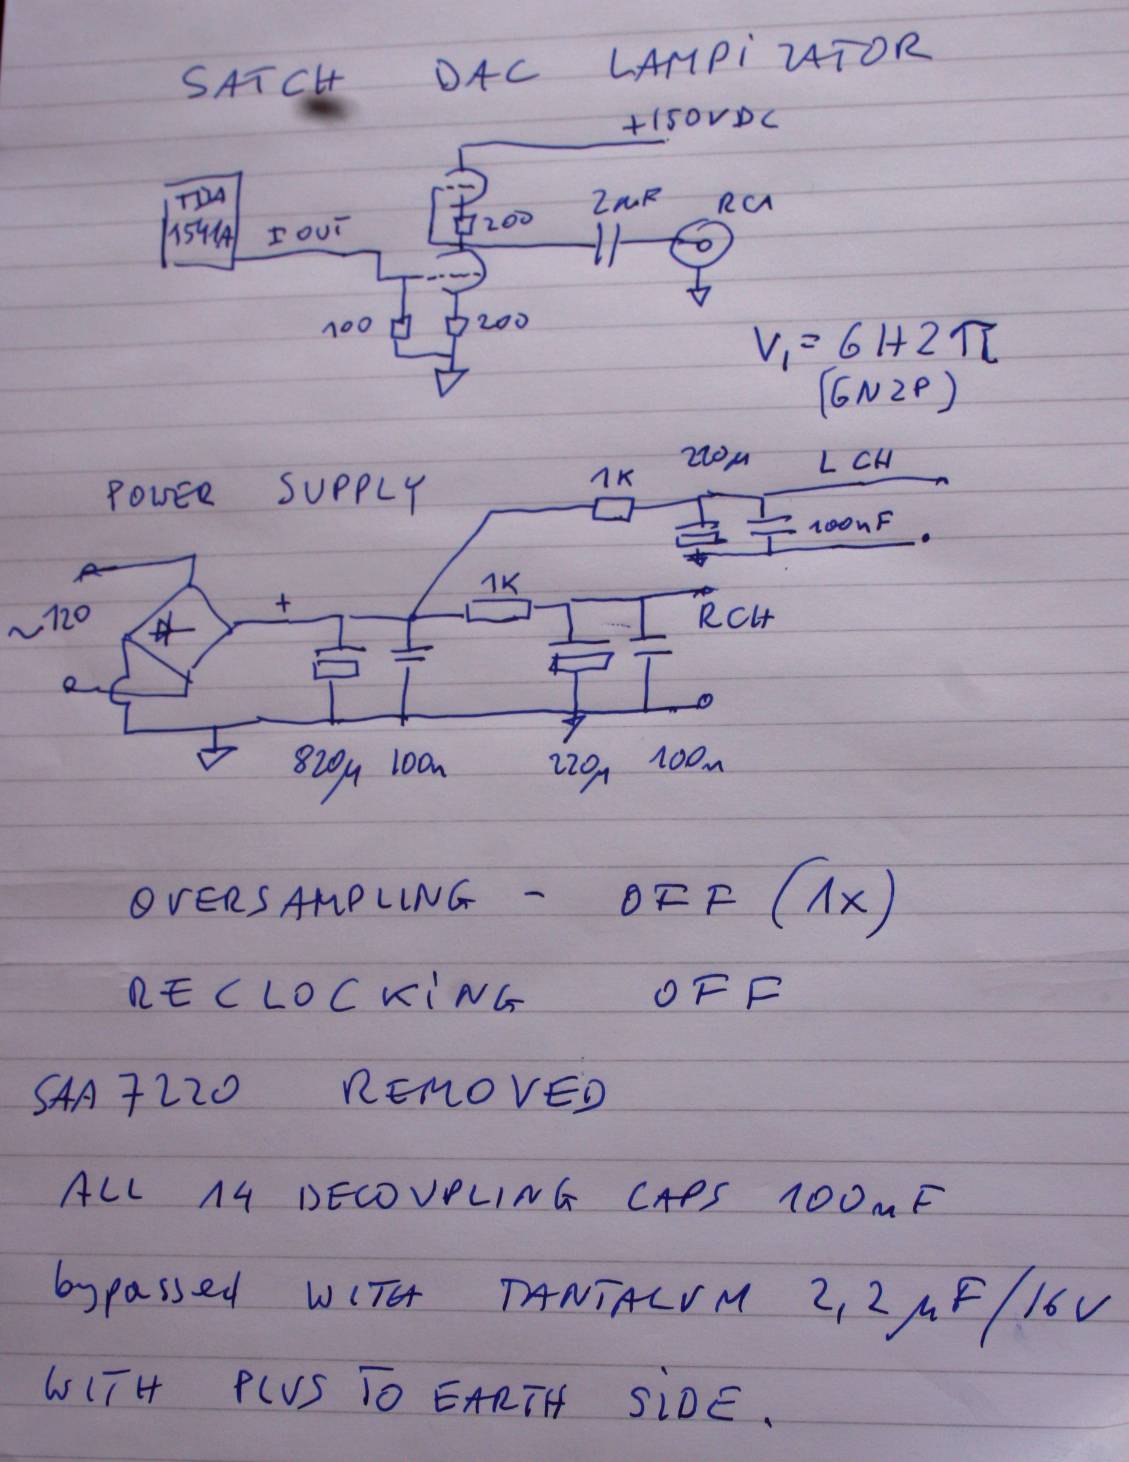 SATCH DAC LAMPiZATOR
+150VDC
TDA
1541A
I OUT
200
2µF
RCA
100
200
V1 = 6H2П
(6N2P)
POWER SUPPLY
1K
220µ
L CH
100nF
~120
+
1K
RCH
820µ
100n
220µ
100n
OVERSAMPLING - OFF (1x)
RECLOCKiNG OFF
SAA 7220 REMOVED
ALL 14 DECOUPLING CAPS 100nF
bypassed WITH TANTALUM 2,2µF/16V
WITH PLUS TO EARTH SiDE.